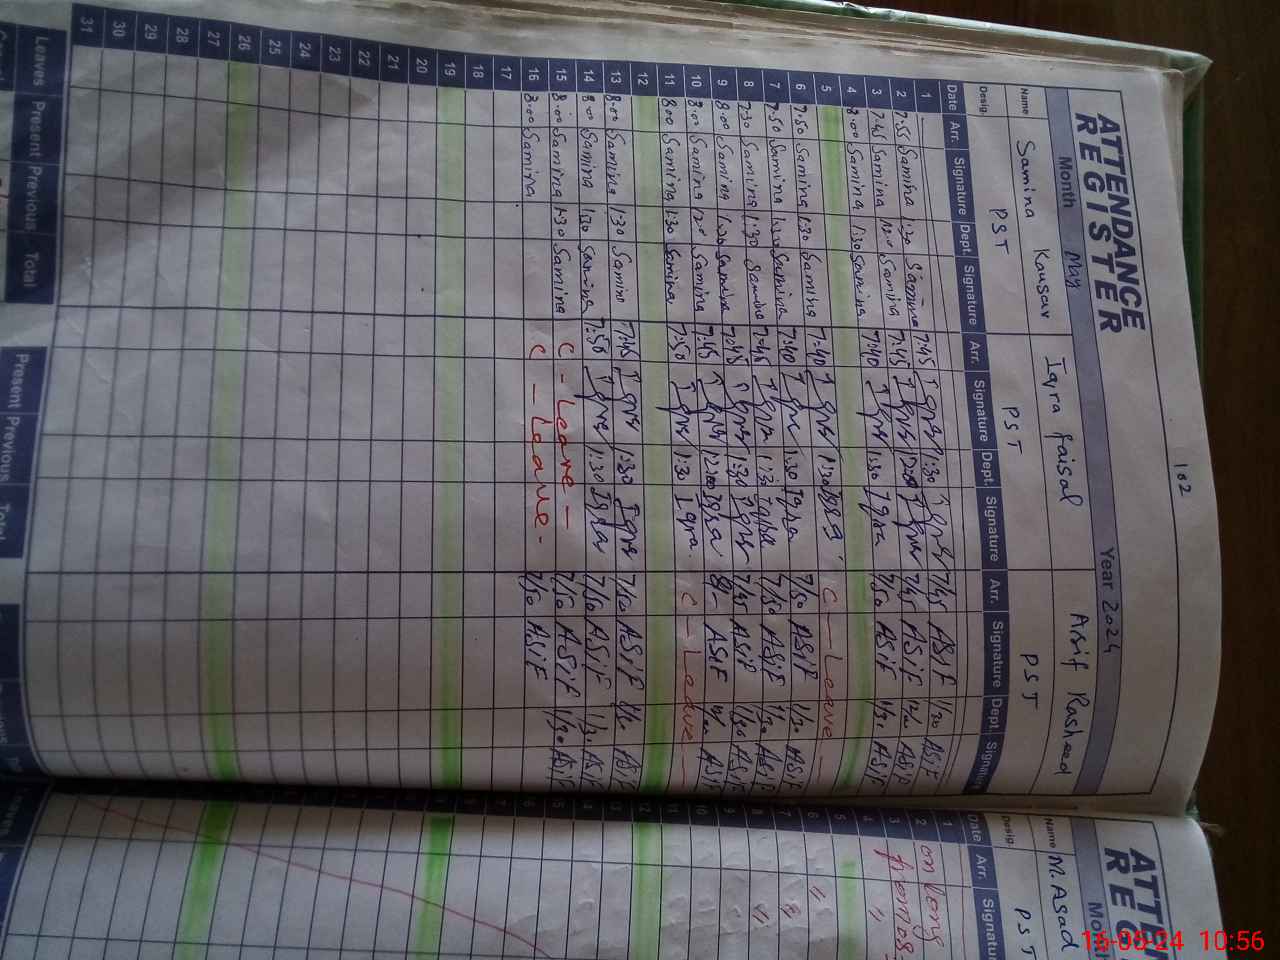 102
ATTENDANCE
REGISTER
Month May Year 2024
Name Samina Kausar Iqra Faisal Arsif Rasheed
Desig. PST PST PST
Date Arr. Signature Dept. Signature Arr. Signature Dept. Signature Arr. Signature Dept. Signature
1
2 7:55 Samina 1:30 Samina 7:45 Iqra 1:30 Iqra 7/45 ASIF 1/30 ASIF
3 7:45 Samina 12:00 Samina 7:45 Iqra 12:00 Iqra 7/45 ASIF ASIF
4 8:00 Samina 1:30 Samina 7:40 Iqra 1:30 Iqra 7/50 ASIF 1/30 ASIF
5
6 7:50 Samina 1:30 Samina 7:40 Iqra 1:30 Iqra C — Leave —
7 7:50 Samina 1:30 Samina 7:40 Iqra 1:30 Iqra 7/50 ASIF 1/30 ASIF
8 7:30 Samina 1:30 Samina 7:45 Iqra 1:30 Iqra 7/50 ASIF 1/30 ASIF
9 8:00 Samina 1:30 Samina 7:45 Iqra 1:30 Iqra 7/45 ASIF 1/30 ASIF
10 8:00 Samina 12:00 Samina 7:45 Iqra 12:00 Iqra 8/- ASIF ASIF
11 8:00 Samina 1:30 Samina 7:50 Iqra 1:30 Iqra C — Leave —
12
13 8:00 Samina 1:30 Samina 7:45 Iqra 1:30 Iqra 7/50 ASIF ASIF
14 8:00 Samina 1:30 Samina 7:50 Iqra 1:30 Iqra 7/50 ASIF 1/30 ASIF
15 8:00 Samina 1:30 Samina C - Leave - 7/50 ASIF 1/30 ASIF
16 8:00 Samina C - Leave - 7/50 ASIF
17
18
19
20
21
22
23
24
25
26
27
28
29
30
31
Leaves Present Previous Total Present Previous Total
Name M. Asad
Desig. PST
Date Arr. Signature
1
2 on long
3
4 "
5
6 "
7 "
8 "
9
10
11
12
13
14
15
16-05-24 10:56